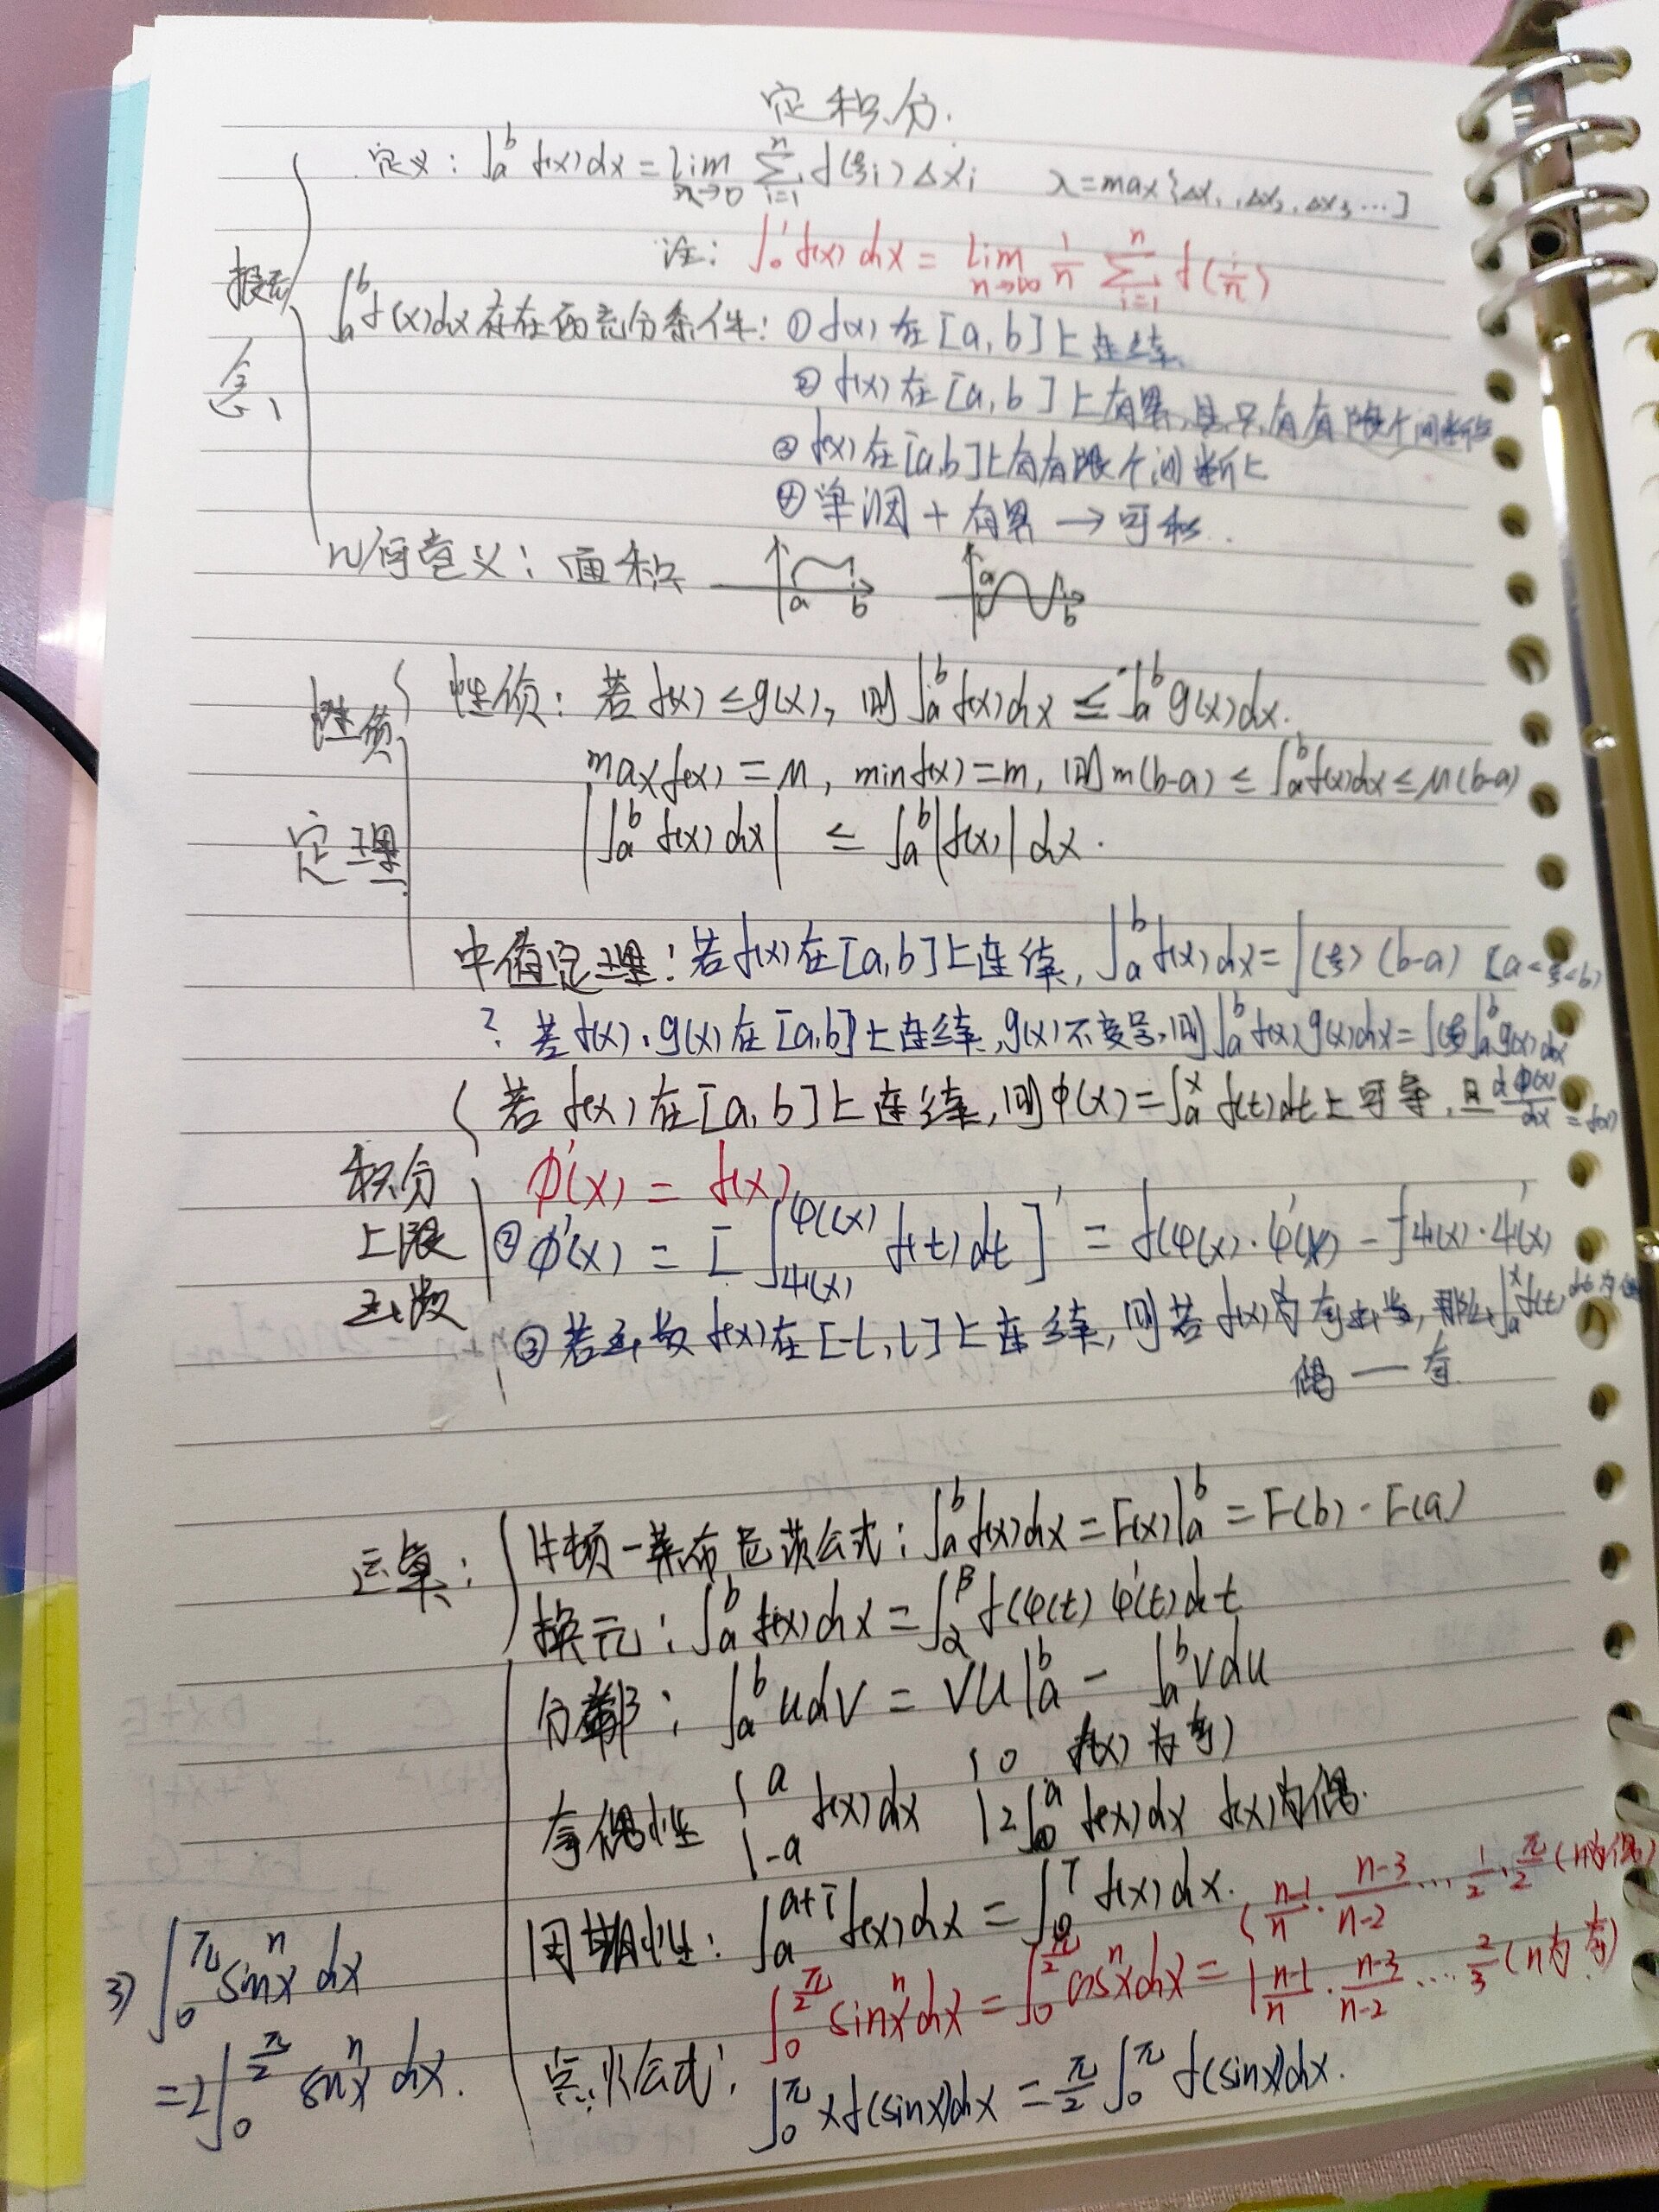 定积分.
定义: ∫_a^b f(x)dx = lim_{λ→0} Σ_{i=1}^n f(ξi)Δxi  λ=max{Δx1,Δx2,Δx3…]
注: ∫_0^1 f(x)dx = lim_{n→∞} 1/n Σ_{i=1}^n f(i/n)
概念
∫_a^b f(x)dx 存在的充分条件: ① f(x) 在 [a,b] 上连续.
② f(x) 在 [a,b] 上有界,且只有有限个间断点
③ f(x) 在 [a,b] 上有有限个间断
④ 单调 + 有界 → 可积.
几何意义: 面积 a b a b
性质 定理
性质: 若 f(x) ≤ g(x), 则 ∫_a^b f(x)dx ≤ ∫_a^b g(x)dx.
max f(x) = M, min f(x) = m, 则 m(b-a) ≤ ∫_a^b f(x)dx ≤ M(b-a)
|∫_a^b f(x)dx| ≤ ∫_a^b |f(x)|dx.
中值定理: 若 f(x) 在 [a,b] 上连续, ∫_a^b f(x)dx = f(ξ)(b-a) (a<ξ<b)
? 若 f(x)、g(x) 在 [a,b] 上连续, g(x) 不变号, 则 ∫_a^b f(x)g(x)dx = f(ξ)∫_a^b g(x)dx
积分上限函数
若 f(x) 在 [a,b] 上连续, 则 φ(x) = ∫_a^x f(t)dt 上可导, 且 dφ(x)/dx = f(x)
φ'(x) = f(x)
② φ'(x) = [∫_{ψ(x)}^{φ(x)} f(t)dt]' = f(φ(x)·φ'(x) - fψ(x)·ψ'(x)
③ 若函数 f(x) 在 [-l,l] 上连续, 则若 f(x) 为奇函数, 那么 ∫_a^x f(t)dt 为偶
偶 — 奇
运算:
牛顿-莱布尼茨公式: ∫_a^b f(x)dx = F(x)|_a^b = F(b) - F(a)
换元: ∫_a^b f(x)dx = ∫_α^β f(φ(t) φ'(t)dt
分部: ∫_a^b udv = vu|_a^b - ∫_a^b vdu
奇偶性 ∫_{-a}^a f(x)dx { 0 f(x) 为奇)
2∫_0^a f(x)dx f(x)为偶.
周期性: ∫_a^{a+T} f(x)dx = ∫_0^T f(x)dx.
点火公式: ∫_0^{π/2} sin^n x dx = ∫_0^{π/2} cos^n x dx = { (n-1)/n · (n-3)/(n-2) … 1/2 · π/2 (n为偶)
(n-1)/n · (n-3)/(n-2) … 2/3 (n为奇)
∫_0^π x f(sinx)dx = π/2 ∫_0^π f(sinx)dx.
3) ∫_0^π sin^n x dx
= 2∫_0^{π/2} sin^n x dx.